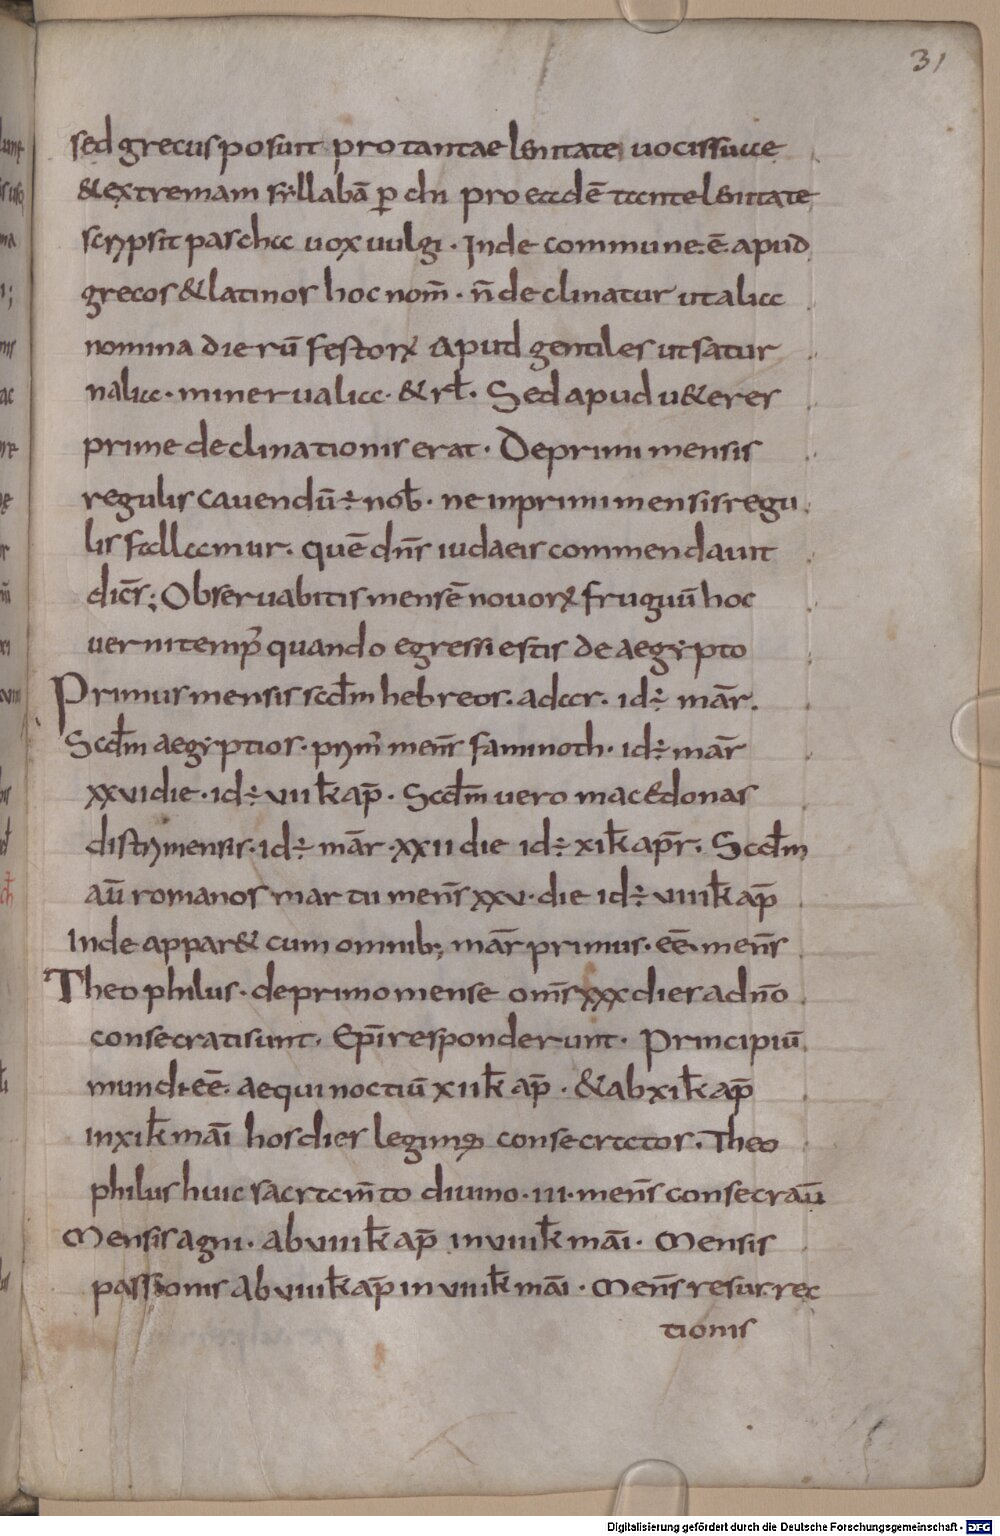 31
sed grecus posuit pro tantae lenitate uocis suae
& extremam syllabā p̄ chi pro eadē tante lenitate
scripsit pascha uox uulgi · Inde commune · ē · apud
grecos & latinos hoc nom̄ · n̄ declinatur ut alia
nomina dierū festorꝝ apud gentiles ut satur
nalia · minerualia · & rł · Sed apud u&eres
prime declinationis erat · De primi mensis
regulis cauendū ÷ nob̄ · ne in primi mensis regu
lis fallamur · quē dn̄s iudaeis commendauit
dicēs; Obseruabitis mensē nouorꝝ frugiuū hoc
uerni temp̄ quando egressi estis de aegypto
Primus mensis scd̄m hebreos · adar · id ÷ mār ·
Scd̄m aegyptios · prim̄ menīs faminoth · id ÷ mār
xxvi die · id ÷ vii k̄ ap̄ · Scd̄m uero macedonas
distri mensis · id ÷ mār · xxii die id ÷ xi k̄ apr̄ · Scd̄m
aū romanos martii men̄s xxv · die id ÷ viii k̄ ap̄
Inde appar& cum omnib; mār primus · eē · men̄s
Theophilus · de primo mense om̄s xxx dies ad n̄o
consecrati sunt · Ep̄i responderunt · Principiū
mundi · eē · aequinoctiū xii k̄ ap̄ · & ab xi k̄ ap̄
in xi k̄ māi hos dies legimus consecratos · Theo
philus huic sacram̄to diuino · iii · men̄s consecraū
Mensis agni · ab viiii k̄ ap̄ in viiii k̄ māi · Mensis
passionis ab viiii k̄ ap̄ in viiii k̄ māi · Men̄s resurrec
tionis
Digitalisierung gefördert durch die Deutsche Forschungsgemeinschaft - DFG